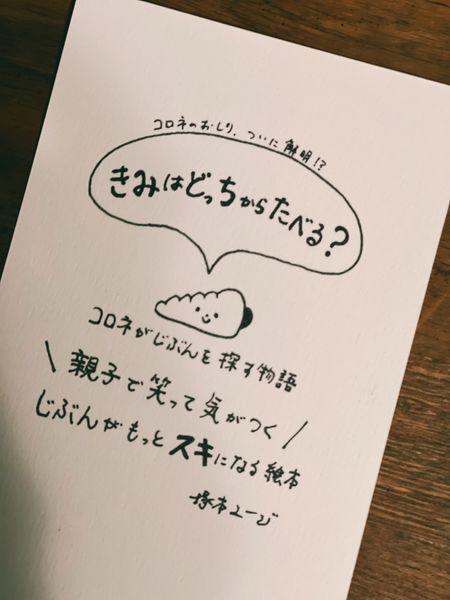 コロネのおしり、ついに解明!?
きみはどっちからたべる?
コロネがじぶんを探す物語
\ 親子で笑って気がつく /
じぶんがもっとスキになる絵本
塚本ユージ